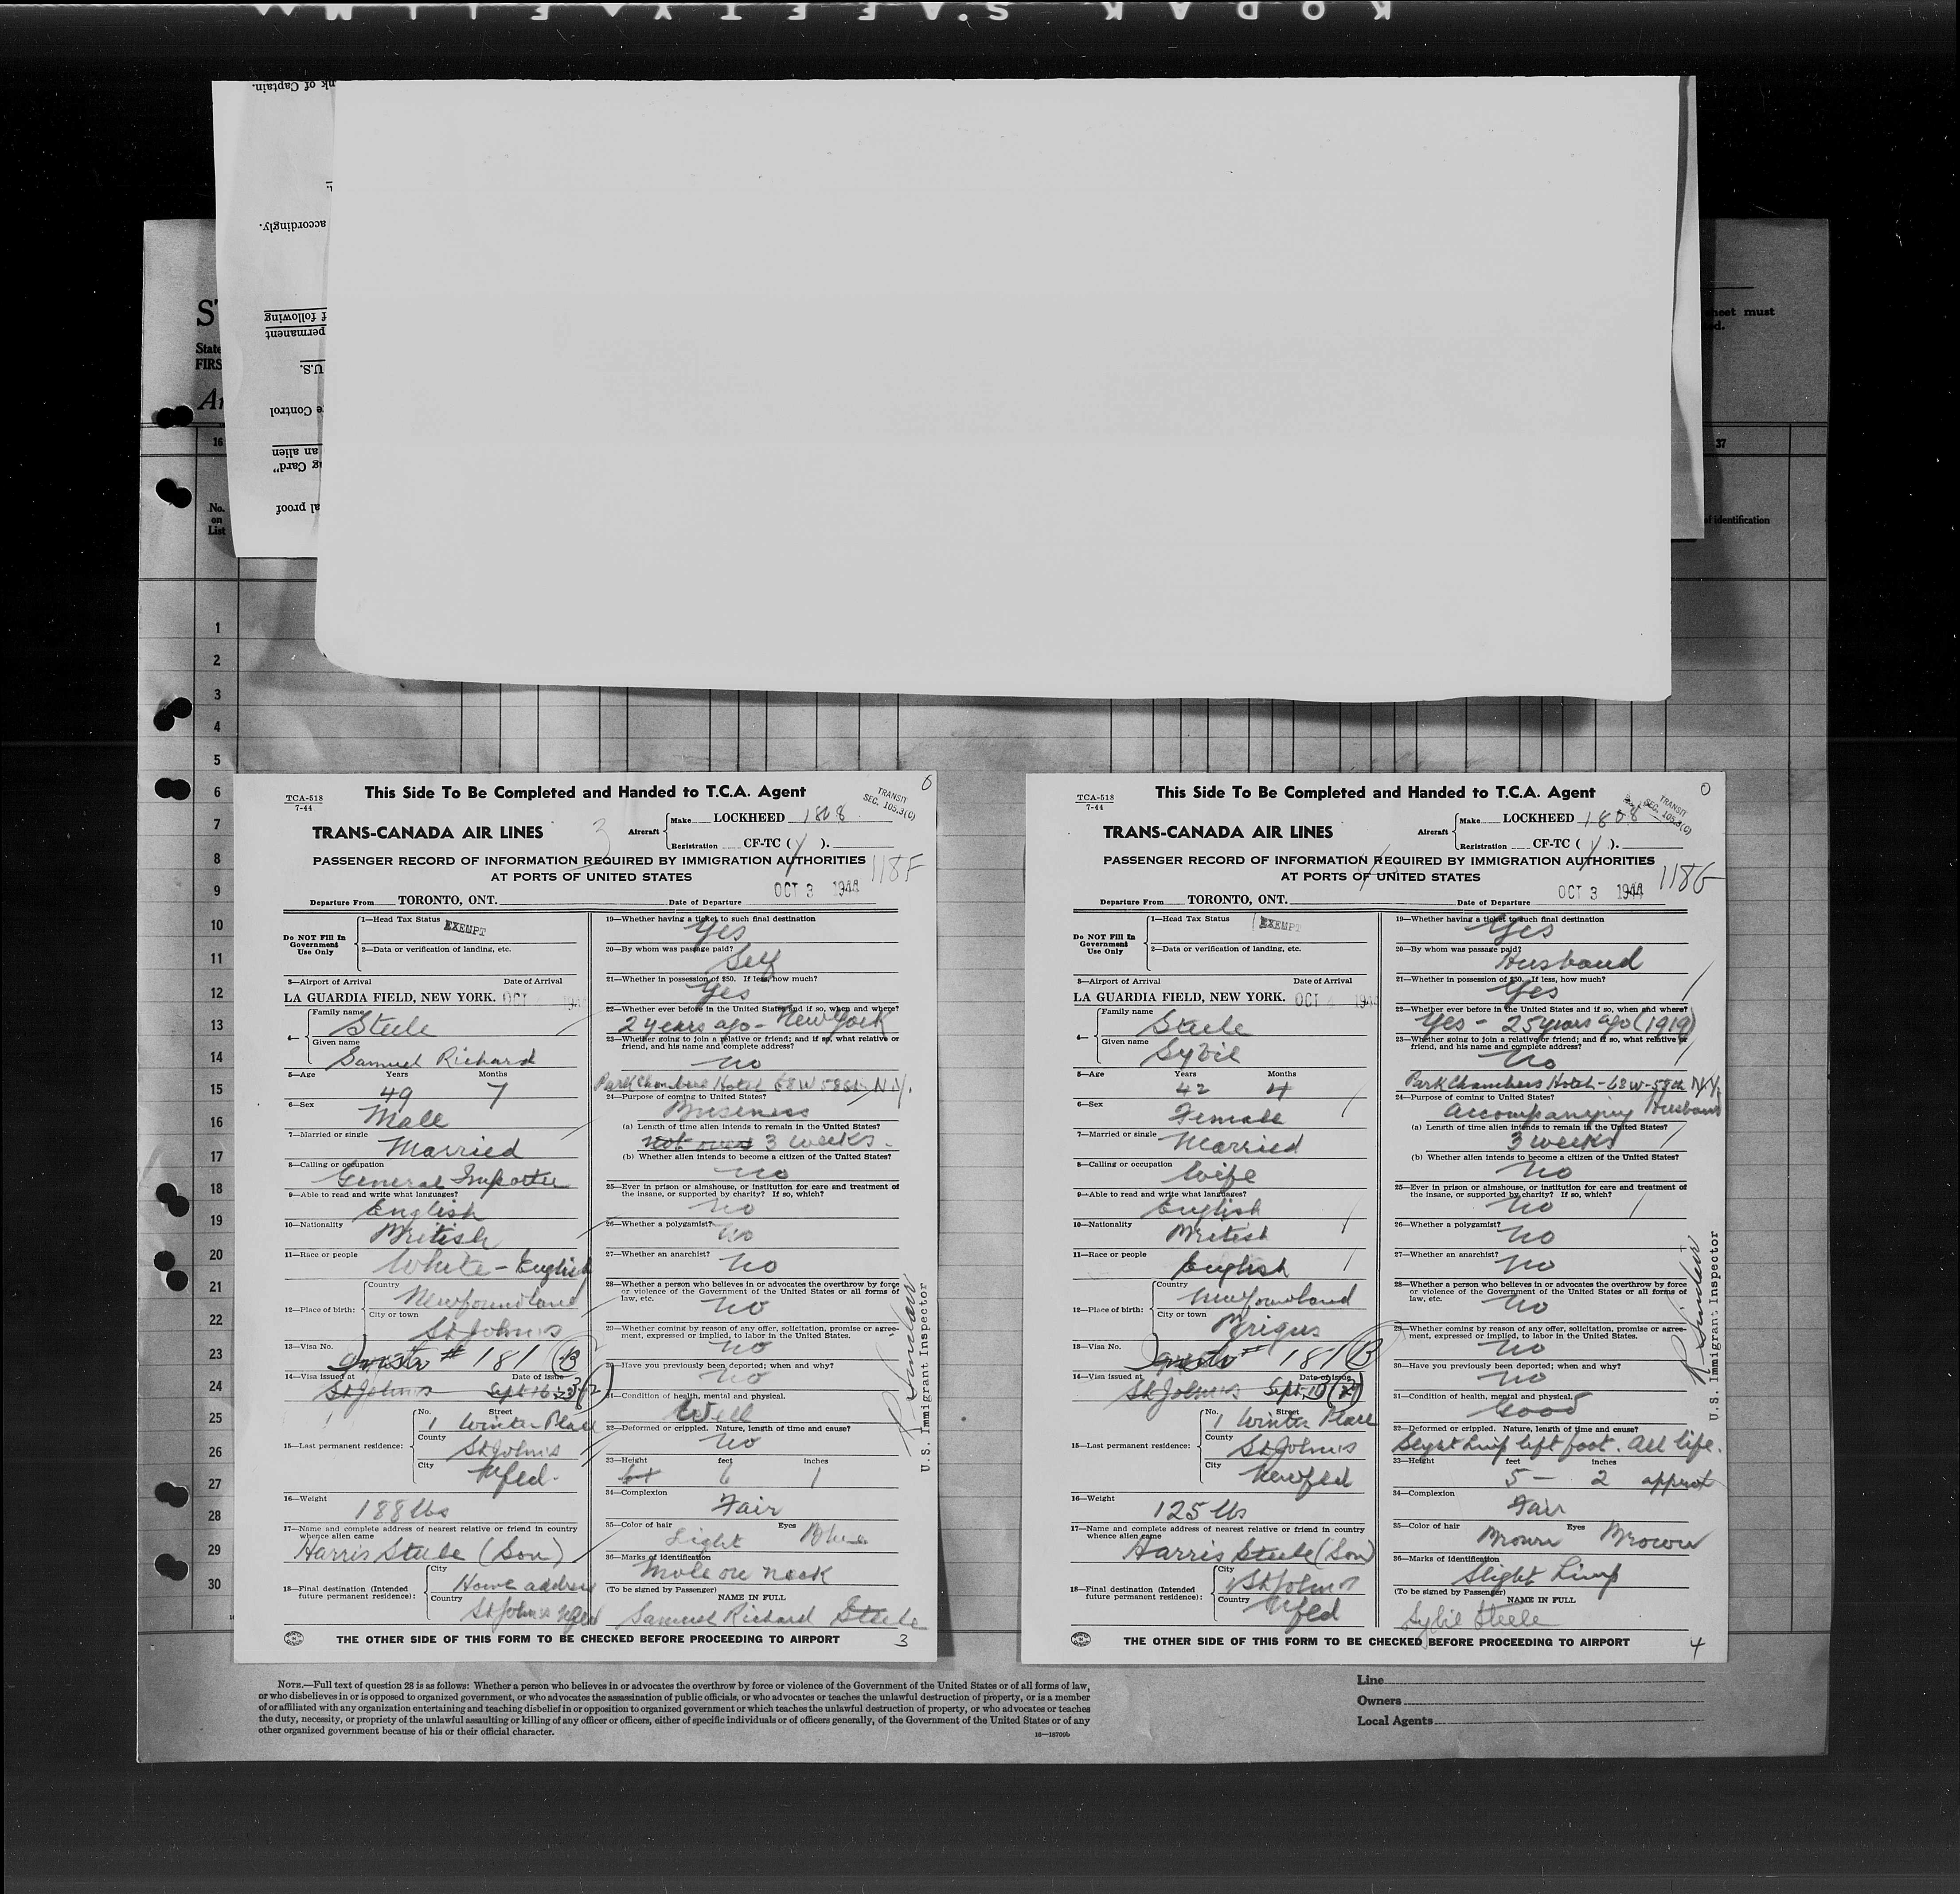 KODAK SAFETY FILM
nk of Captain.
accordingly.
f following
permanent
U.S.
e Control
an alien
g Card"
al proof
ST
State
FIRS
Ar
sheet must
ed.
16
37
No.
on
List
of identification
1
2
3
4
5
6
7
8
9
10
11
12
13
14
15
16
17
18
19
20
21
22
23
24
25
26
27
28
29
30
0
TCA-518
7-44
This Side To Be Completed and Handed to T.C.A. Agent
TRANSIT
SEC. 105.3(C)
TRANS-CANADA AIR LINES
3
Aircraft
Make LOCKHEED 1808
Registration CF-TC (Y).
PASSENGER RECORD OF INFORMATION REQUIRED BY IMMIGRATION AUTHORITIES
AT PORTS OF UNITED STATES
118F
OCT 3 1944
Departure From TORONTO, ONT. Date of Departure
Do NOT Fill In
Government
Use Only
1—Head Tax Status EXEMPT
2—Data or verification of landing, etc.
3—Airport of Arrival Date of Arrival
LA GUARDIA FIELD, NEW YORK. OCT 1944
4—
Family name
Steele
Given name
Samuel Richard
5—Age Years Months
49 7
6—Sex
Male
7—Married or single
Married
8—Calling or occupation
General Importer
9—Able to read and write what languages?
English
10—Nationality
British
11—Race or people
White - English
12—Place of birth:
Country
Newfoundland
City or town
St John's
13—Visa No.
# 181 (B)
14—Visa issued at Date of issue
St John's Sept 16 3(2)
15—Last permanent residence:
No. Street
1 Winter Place
County
St John's
City
Nfld.
16—Weight
188 lbs
17—Name and complete address of nearest relative or friend in country
whence alien came
Harris Steele (Son)
18—Final destination (Intended
future permanent residence):
City
Home address
Country
St John's Nfld
19—Whether having a ticket to such final destination
Yes
20—By whom was passage paid?
Self
21—Whether in possession of $50. If less, how much?
Yes
22—Whether ever before in the United States and if so, when and where?
2 years ago - New York
23—Whether going to join a relative or friend; and if so, what relative or
friend, and his name and complete address?
No
Park Chambers Hotel 68 W 58 St N.Y.
24—Purpose of coming to United States?
Business
(a) Length of time alien intends to remain in the United States?
not over 3 weeks.
(b) Whether alien intends to become a citizen of the United States?
No
25—Ever in prison or almshouse, or institution for care and treatment of
the insane, or supported by charity? If so, which?
No
26—Whether a polygamist?
No
27—Whether an anarchist?
No
28—Whether a person who believes in or advocates the overthrow by force
or violence of the Government of the United States or all forms of
law, etc.
No
29—Whether coming by reason of any offer, solicitation, promise or agree-
ment, expressed or implied, to labor in the United States.
No
30—Have you previously been deported; when and why?
No
31—Condition of health, mental and physical.
Well
32—Deformed or crippled. Nature, length of time and cause?
No
33—Height feet inches
6+ 6 1
34—Complexion
Fair
35—Color of hair Eyes
Light Blue
36—Marks of identification
Mole on neck
(To be signed by Passenger) NAME IN FULL
Samuel Richard Steele
R Sinclair
U.S. Immigrant Inspector
THE OTHER SIDE OF THIS FORM TO BE CHECKED BEFORE PROCEEDING TO AIRPORT
3
0
TCA-518
7-44
This Side To Be Completed and Handed to T.C.A. Agent
TRANSIT
SEC. 105.3(C)
TRANS-CANADA AIR LINES
Aircraft
Make LOCKHEED 1808
Registration CF-TC (Y).
PASSENGER RECORD OF INFORMATION REQUIRED BY IMMIGRATION AUTHORITIES
AT PORTS OF UNITED STATES
118G
OCT 3 1944
Departure From TORONTO, ONT. Date of Departure
Do NOT Fill In
Government
Use Only
1—Head Tax Status EXEMPT
2—Data or verification of landing, etc.
3—Airport of Arrival Date of Arrival
LA GUARDIA FIELD, NEW YORK. OCT 1944
4—
Family name
Steele
Given name
Sybil
5—Age Years Months
42 4
6—Sex
Female
7—Married or single
Married
8—Calling or occupation
Wife
9—Able to read and write what languages?
English
10—Nationality
British
11—Race or people
English
12—Place of birth:
Country
Newfoundland
City or town
Brigus
13—Visa No.
# 181 (B)
14—Visa issued at Date of issue
St John's Sept. 16
15—Last permanent residence:
No. Street
1 Winter Place
County
St John's
City
Newfld
16—Weight
125 lbs
17—Name and complete address of nearest relative or friend in country
whence alien came
Harris Steele (Son)
18—Final destination (Intended
future permanent residence):
City
St John's
Country
Nfld
19—Whether having a ticket to such final destination
Yes
20—By whom was passage paid?
Husband
21—Whether in possession of $50. If less, how much?
Yes
22—Whether ever before in the United States and if so, when and where?
Yes - 25 years ago (1919)
23—Whether going to join a relative or friend; and if so, what relative or
friend, and his name and complete address?
No
Park Chambers Hotel - 68 W - 58th N.Y.
24—Purpose of coming to United States?
Accompanying Husband
(a) Length of time alien intends to remain in the United States?
3 weeks
(b) Whether alien intends to become a citizen of the United States?
No
25—Ever in prison or almshouse, or institution for care and treatment of
the insane, or supported by charity? If so, which?
No
26—Whether a polygamist?
No
27—Whether an anarchist?
No
28—Whether a person who believes in or advocates the overthrow by force
or violence of the Government of the United States or all forms of
law, etc.
No
29—Whether coming by reason of any offer, solicitation, promise or agree-
ment, expressed or implied, to labor in the United States.
No
30—Have you previously been deported; when and why?
No
31—Condition of health, mental and physical.
Good
32—Deformed or crippled. Nature, length of time and cause?
Slight Limp left foot. All life.
33—Height feet inches
5 - 2 approx
34—Complexion
Fair
35—Color of hair Eyes
Brown Brown
36—Marks of identification
Slight Limp
(To be signed by Passenger) NAME IN FULL
Sybil Steele
R Sinclair
U.S. Immigrant Inspector
THE OTHER SIDE OF THIS FORM TO BE CHECKED BEFORE PROCEEDING TO AIRPORT
4
NOTE.—Full text of question 28 is as follows: Whether a person who believes in or advocates the overthrow by force or violence of the Government of the United States or of all forms of law,
or who disbelieves in or is opposed to organized government, or who advocates the assassination of public officials, or who advocates or teaches the unlawful destruction of property, or is a member
of or affiliated with any organization entertaining and teaching disbelief in or opposition to organized government or which teaches the unlawful destruction of property, or who advocates or teaches
the duty, necessity, or propriety of the unlawful assaulting or killing of any officer or officers, either of specific individuals or of officers generally, of the Government of the United States or of any
other organized government because of his or their official character.
16—18709b
Line
Owners
Local Agents